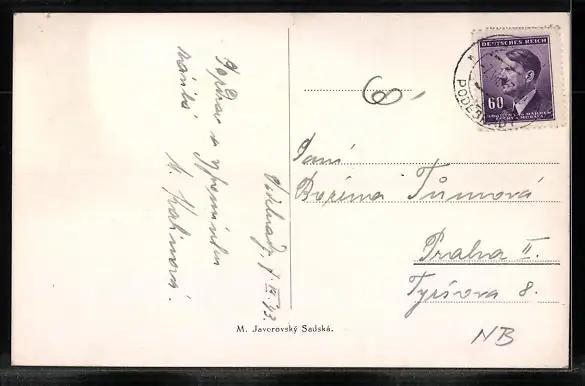 Pozdrav a vzpomínku
zasílá
A. Kalinová.
Poděbrady, 7/IX.43.
Paní
Božena Tůmová
Praha II.
Tyršova 8.
NB
DEUTSCHES REICH
60
BÖHMEN UND MÄHREN
ČECHY A MORAVA
PODĚBRADY
M. Javorovský Sadská.